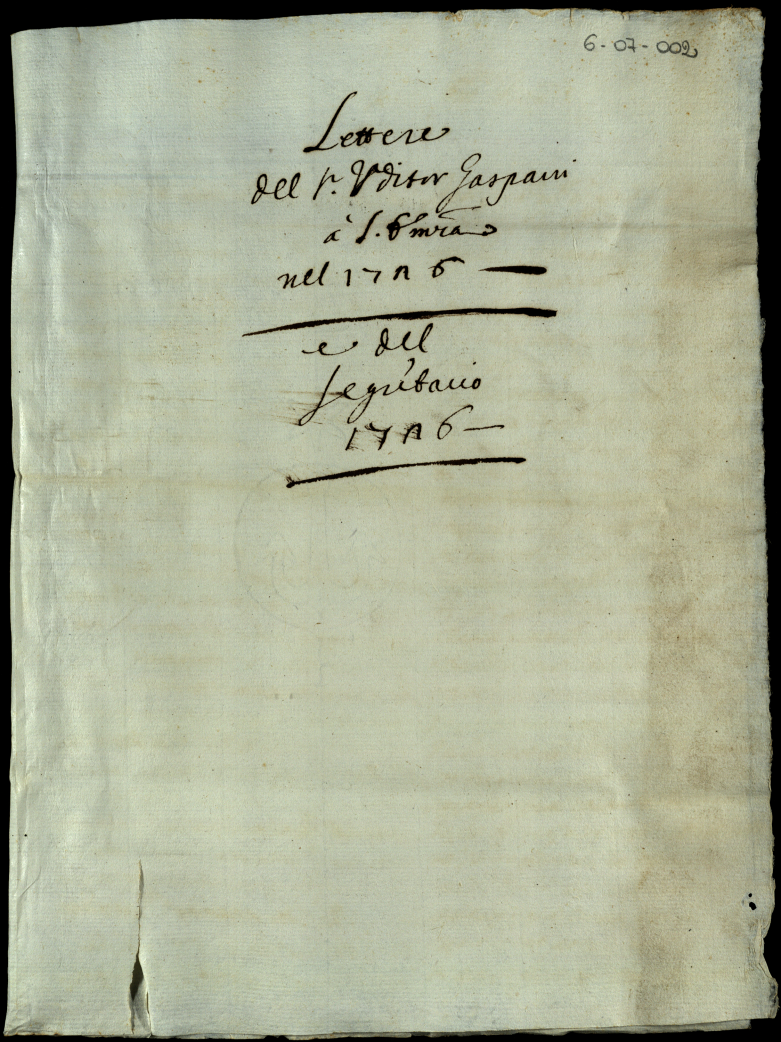 6-07-002
Lettere
del Sr. Vditor Gaspari
à S. Emza
nel 1726
e del
segretario
1726